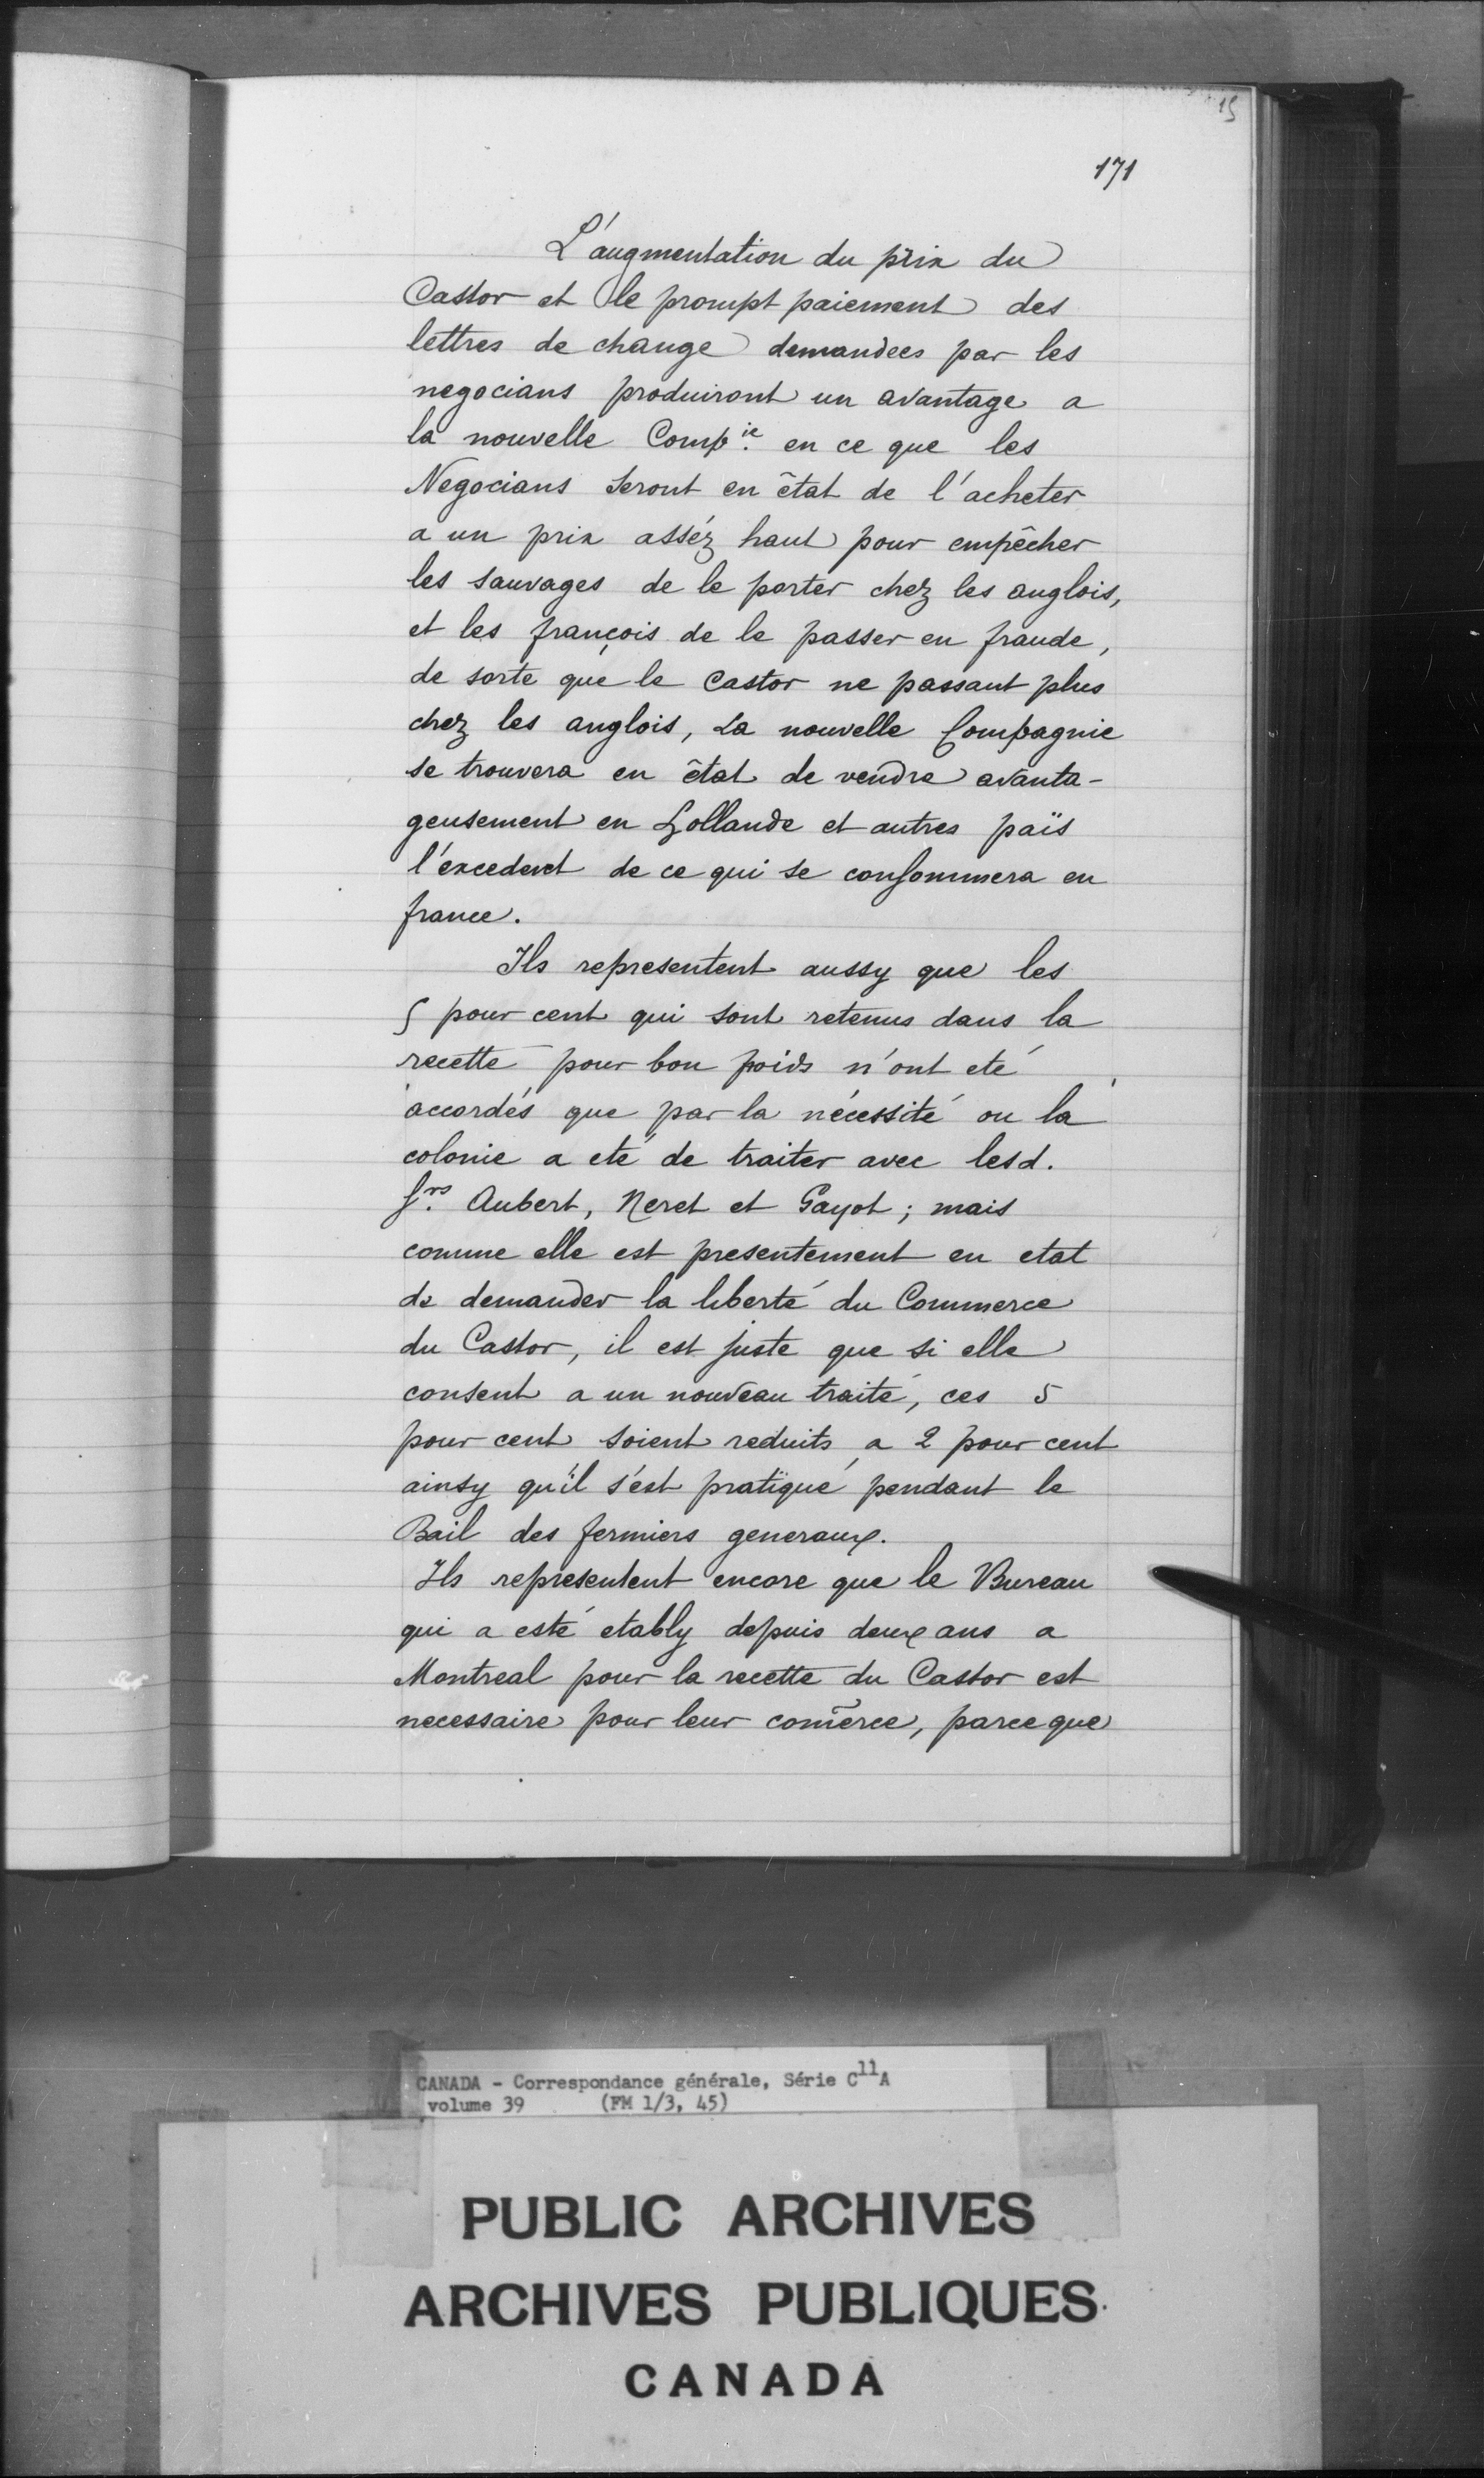 15
171
L'augmentation du prix du
Castor et le prompt paiement des
lettres de change demandees par les
negocians produiront un avantage a
la nouvelle Comp.ie en ce que les
Negocians seront en êtat de l'acheter
a un prix asséz haut pour empêcher
les sauvages de le porter chez les anglois,
et les françois de le passer en fraude,
de sorte que le Castor ne passant plus
chez les anglois, La nouvelle Compagnie
se trouvera en êtat de vendre avanta-
geusement en hollande et autres païs
l'excedent de ce qui se consommera en
france.
Ils representent aussy que les
5 pour cent qui sont retenus dans la
recette pour bon poids n'ont eté
accordés que par la nécessité ou la
colonie a eté de traiter avec lesd.
Srs. Aubert, Neret et Gayot; mais
comme elle est presentement en etat
de demander la liberté du Commerce
du Castor, il est juste que si elle
consent a un nouveau traité, ces 5
pour cent soient reduits a 2 pour cent
ainsy qu'il s'est pratiqué pendant le
Bail des fermiers generaux.
Ils representent encore que le Bureau
qui a esté etably depuis deux ans a
Montreal pour la recette du Castor est
necessaire pour leur com̃erce, parce que
CANADA - Correspondance générale, Série C11A
volume 39 (FM 1/3, 45)
PUBLIC ARCHIVES
ARCHIVES PUBLIQUES
CANADA